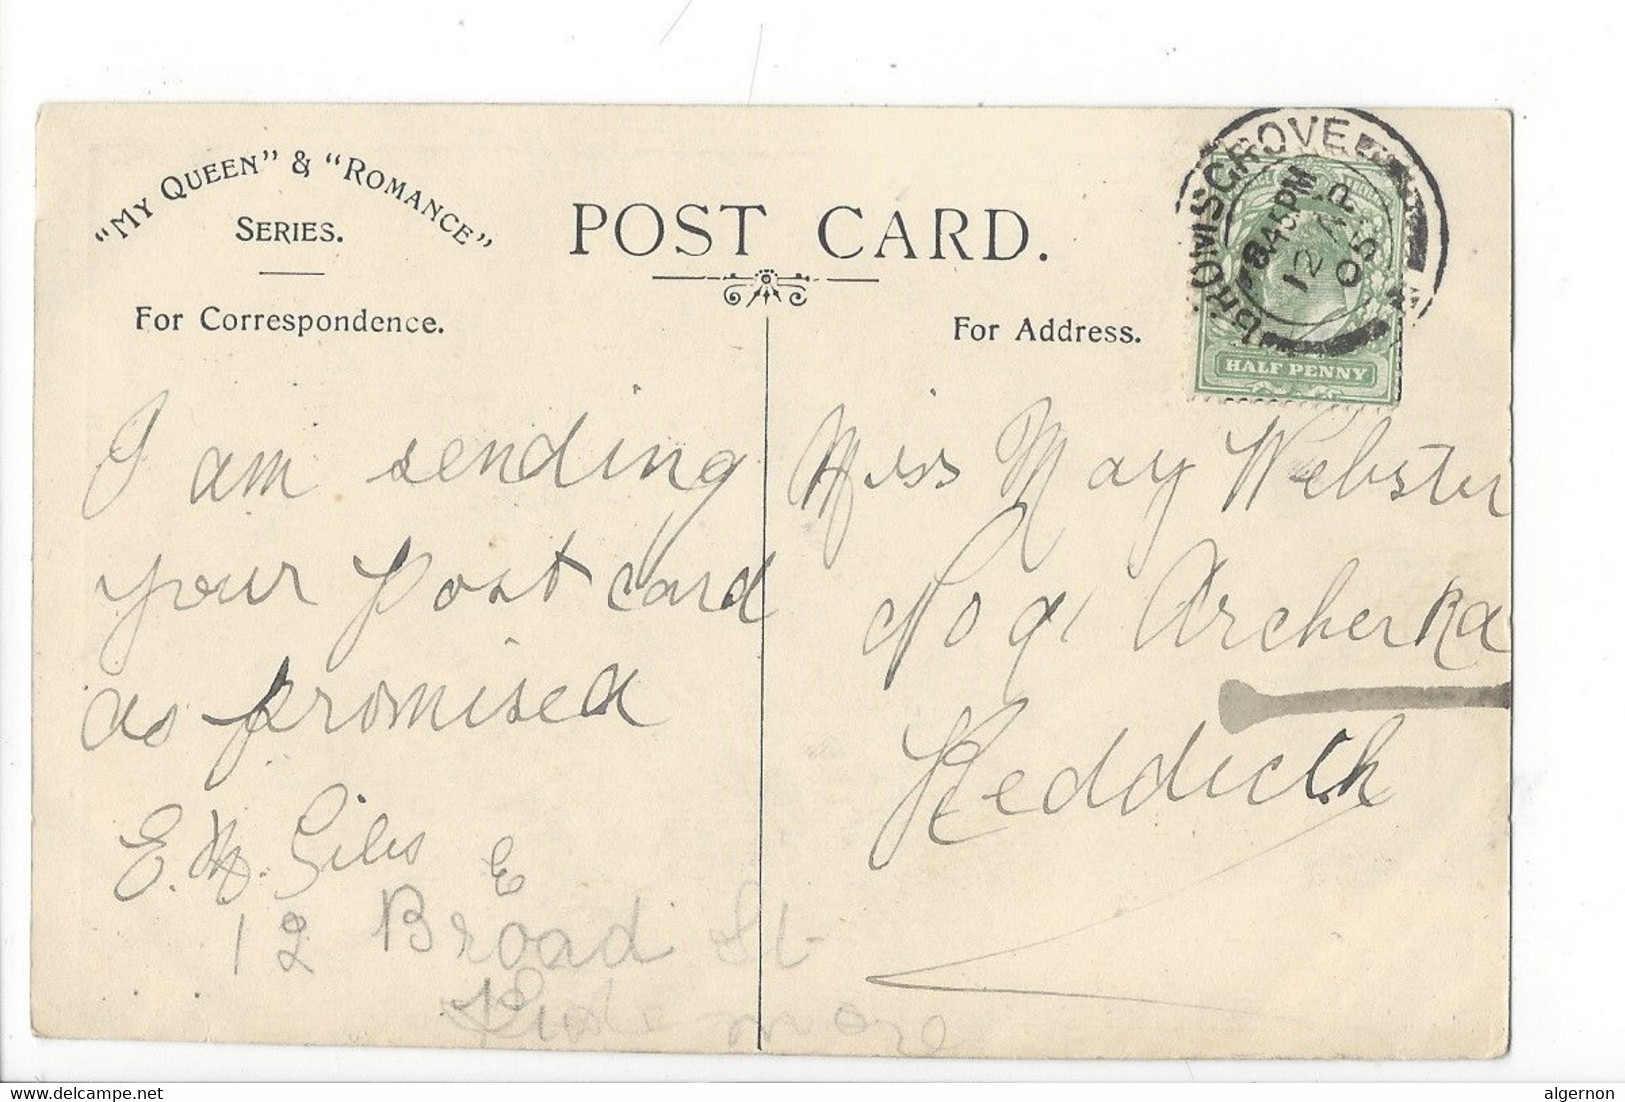 "MY QUEEN" & "ROMANCE"
SERIES.
POST CARD.
For Correspondence.
For Address.
BROMSGROVE
8.45PM
12 AP
05
HALF PENNY
I am sending
your post card
as promised
E. M. Giles
E
12 Broad St
Miss May Webster
No 91 Archer Rd
Redditch
algernon